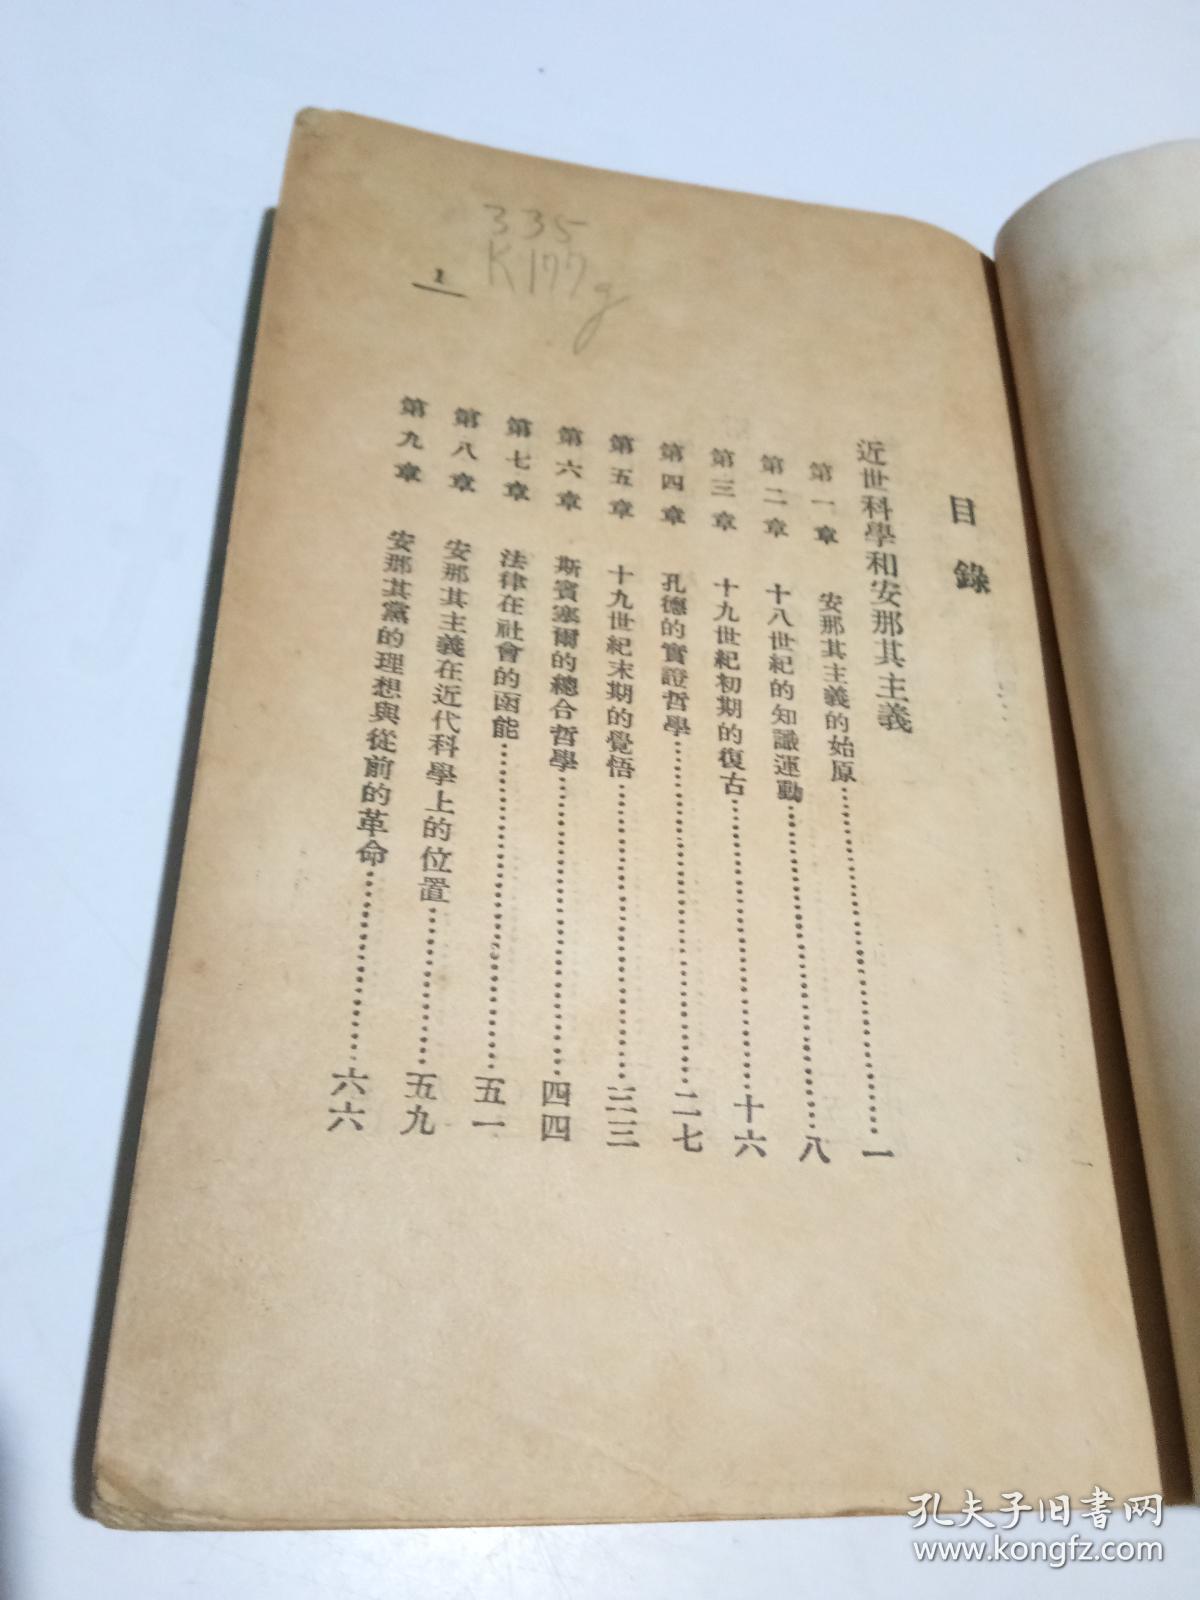 335
K177g
1
目錄
近世科學和安那其主義
第一章 安那其主義的始原……………………一
第二章 十八世紀的知識運動……………………八
第三章 十九世紀初期的復古……………………十六
第四章 孔德的實證哲學……………………二七
第五章 十九世紀末期的覺悟……………………三三
第六章 斯賓塞爾的總合哲學……………………四四
第七章 法律在社會的函能……………………五一
第八章 安那其主義在近代科學上的位置……………………五九
第九章 安那其黨的理想與從前的革命……………………六六
孔夫子旧书网
www.kongfz.com